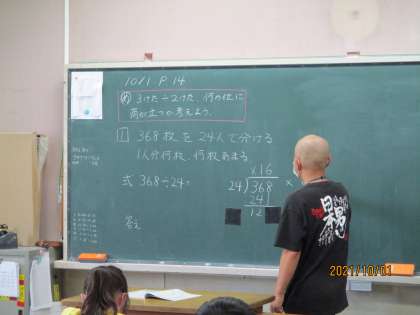 10/1 P.14
め 3けた÷2けた、何の位に
商が立つか考えよう。
1 368枚を24人で分ける
1人分何枚、何枚あまる
式 368÷24=
×16
24)368
24
12
答え
2021/10/01